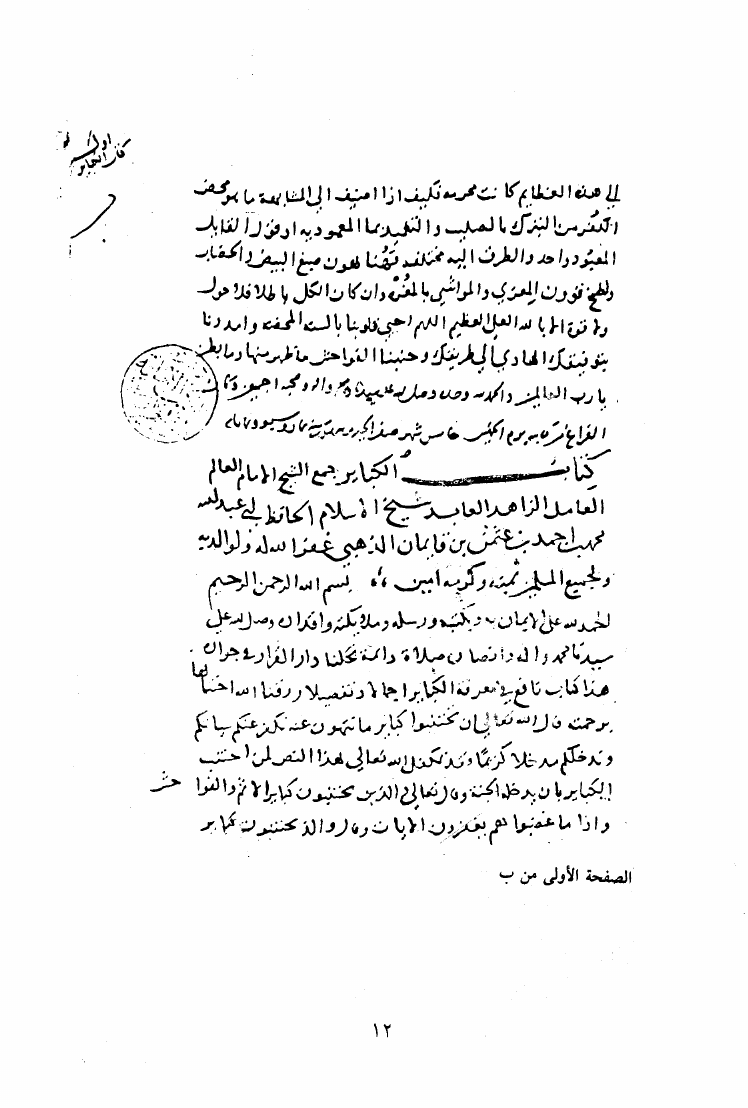 اول
كتاب الكباير
الى هذه العظايم كانت محرمة فكيف اذا اضيف الى المشابهة ما هو محض
الكفر من التبرك بالصليب والتغليد بماء المعمودية او قول القايل
المعبود واحد والطرق اليه مختلفة فهنا يهون صبغ البيض و
قرون المعزى والمواشي بالمغرة وان كان الكل باطلا فلا حول
ولا قوة الا بالله العلي العظيم اللهم احيي قلوبنا بالسنة المحضة وامددنا
بتوفيقك الهادي الى طريقك وجنبنا الفواحش ما ظهر منها وما بطن
يا رب العالمين والحمد لله وحده وصلى الله على سيدنا محمد واله وصحبه اجمعين وكان
الفراغ يوم الخميس خامس شهر صفر
كتاب الكباير جمع الشيخ الامام العالم
العامل الزاهد العابد شيخ الاسلام الحافظ ابي عبد الله
محمد بن احمد بن عثمن بن قايماز الذهبي غفر الله له ولوالديه
ولجميع المسلمين بمنه وكرمه امين بسم الله الرحمن الرحيم
الحمد لله على الايمان به وبكتبه ورسله وملايكته واقداره وصلى الله على
سيدنا محمد واله وانصاره صلاة دايمة تحلنا دار القرار في جواره
هذا كتاب نافع في معرفة الكباير اجمالا وتفصيلا رزقنا الله اجتنابها
برحمته قال الله تعالى ان تجتنبوا كباير ما تنهون عنه نكفر عنكم سياتكم
وندخلكم مدخلا كريما وقد تكفل الله تعالى بهذا النص لمن اجتنب
الكباير بان يدخله الجنة وقال تعالى الذين يجتنبون كباير الاثم والفواحش
واذا ما غضبوا هم يغفرون الايات وقال والذين يجتنبون كباير
الصفحة الأولى من ب
١٢